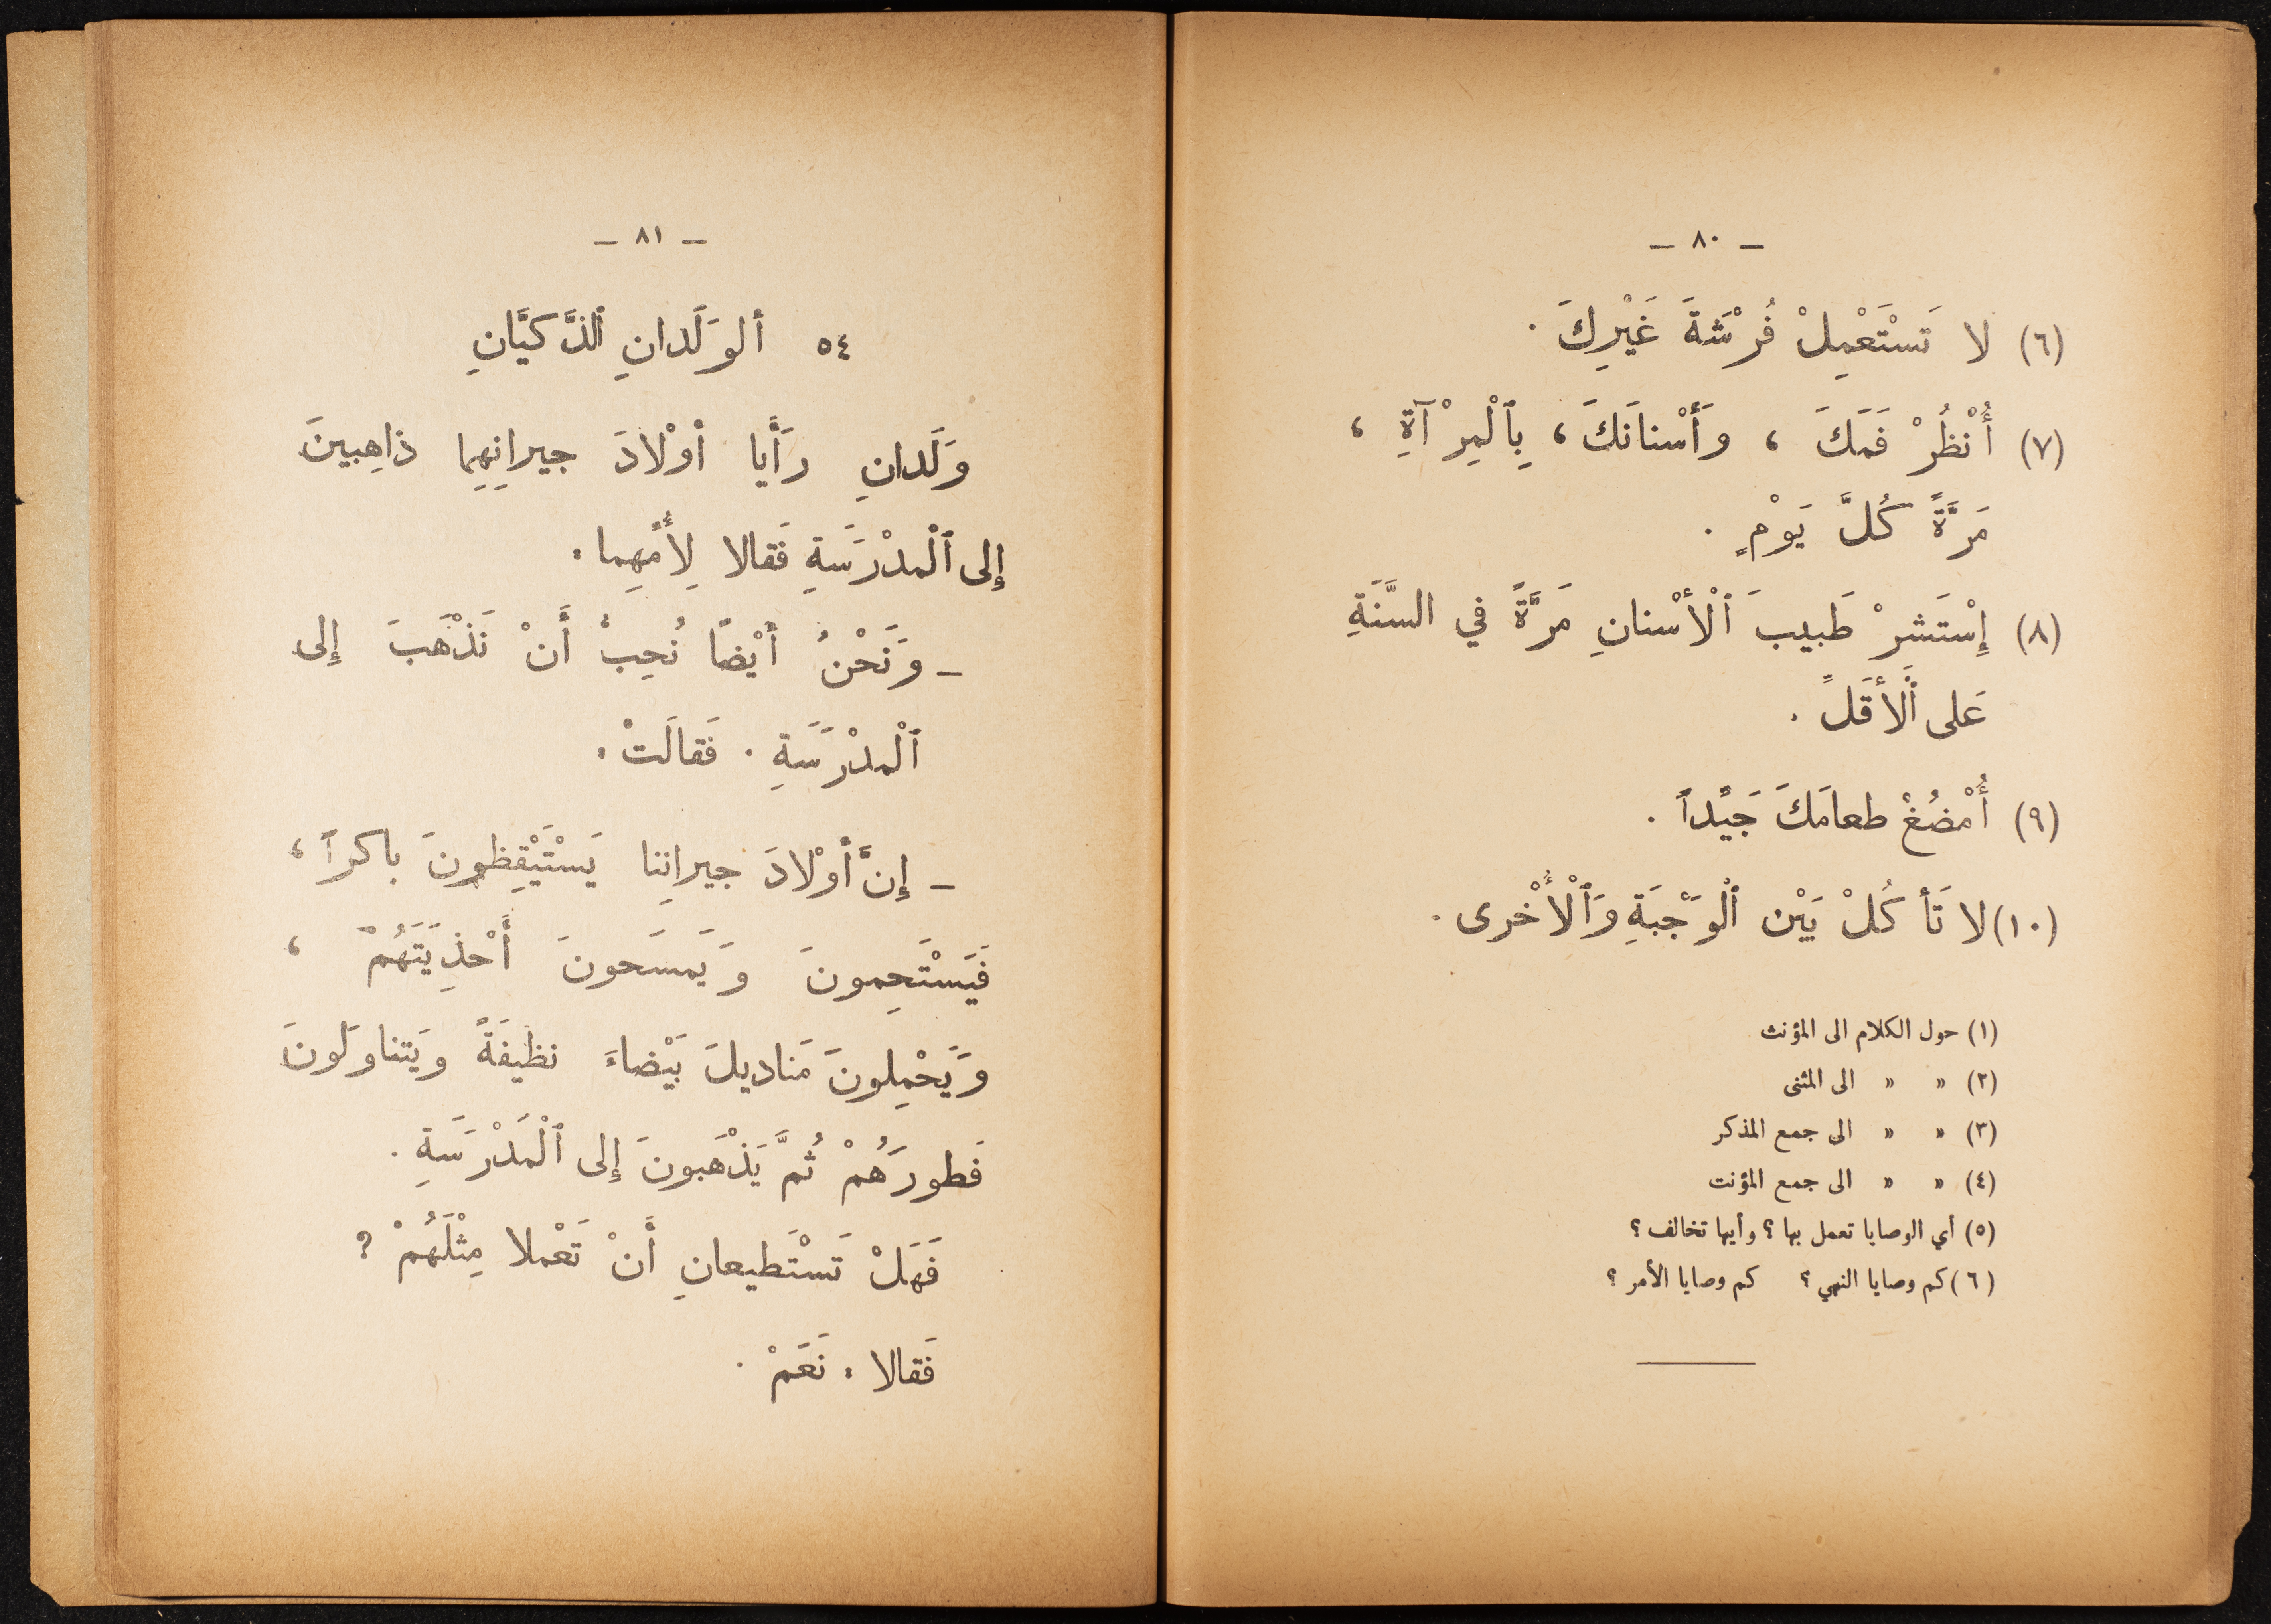 – ٨٠ –
(٦) لا تَسْتَعْمِلْ فُرْشَةَ غَيْرِكَ .
(٧) أُنْظُرْ فَمَكَ ، وَأَسْنانَكَ ، بِٱلْمِرْآةِ ،
مَرَّةً كُلَّ يَوْمٍ .
(٨) إِسْتَشِرْ طَبيبَ ٱلْأَسْنانِ مَرَّةً في السَّنَةِ
عَلى ٱلْأَقَلِّ .
(٩) أُمْضُغْ طعامَكَ جَيِّداً .
(١٠) لا تَأكُلْ بَيْن ٱلْوَجْبَةِ وَٱلْأُخْرى .
(١) حول الكلام الى المؤنث
(٢) « « الى المثنى
(٣) « « الى جمع المذكر
(٤) « « الى جمع المؤنت
(٥) أي الوصايا تعمل بها ؟ وأيها تخالف ؟
(٦) كم وصايا النهي ؟ كم وصايا الأمر ؟
– ٨١ –
٥٤ ألوَلَدانِ ٱلذَّكيَّانِ
وَلَدانِ رَأَيا أوْلادَ جيرانِهِما ذاهِبينَ
إِلى ٱلْمدْرَسَةِ فَقالا لِأُمِّهِما :
– وَنَحْنُ أيْضًا نُحِبُّ أَنْ نَذْهَبَ إِلى
ٱلْمدْرَسَةِ . فَقالَتْ :
– إِنَّ أوْلادَ جيرانِنا يَسْتَيْقِظونَ باكراً ،
فَيَسْتَحِمونَ وَيَمسَحونَ أَحْذِيَتَهُمْ ،
وَيَحْمِلونَ مَناديلَ بَيْضاءَ نظيفَةً ويَتناوَلونَ
فَطورَهُمْ ثُمَّ يَذْهَبونَ إِلى ٱلْمَدْرَسَةِ .
فَهَلْ تَسْتَطيعانِ أَنْ تَعْملا مِثْلَهُمْ ؟
فَقالا : نَعَمْ .